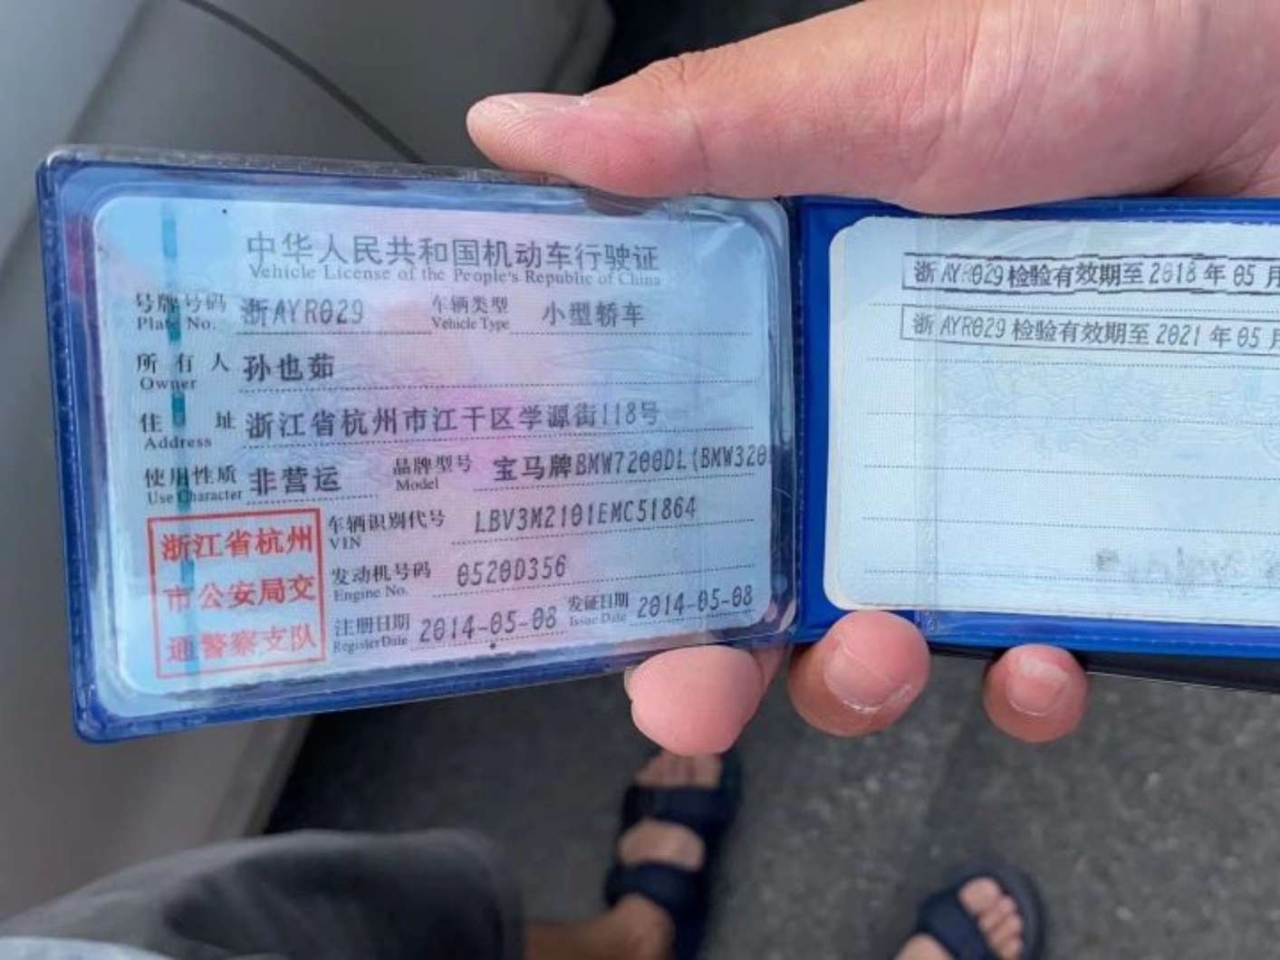 中华人民共和国机动车行驶证
Vehicle License of the People's Republic of China
号牌号码 浙AYR029 车辆类型 小型轿车
Plate No. Vehicle Type
所有人 孙也茹
Owner
住址 浙江省杭州市江干区学源街118号
Address
使用性质 非营运 品牌型号 宝马牌BMW7200DL(BMW320
Use Character Model
浙江省杭州
市公安局交
通警察支队
车辆识别代号 LBV3M2101EMC51864
VIN
发动机号码 0520D356
Engine No.
注册日期 2014-05-08 发证日期 2014-05-08
Register Date Issue Date
浙AYR029检验有效期至2018年05月
浙AYR029检验有效期至2021年05月